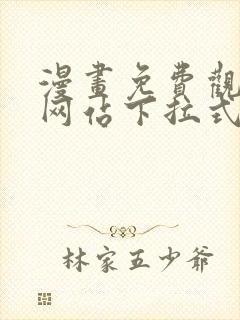 漫畫免費觀
网佔下拉式
林家五少爷